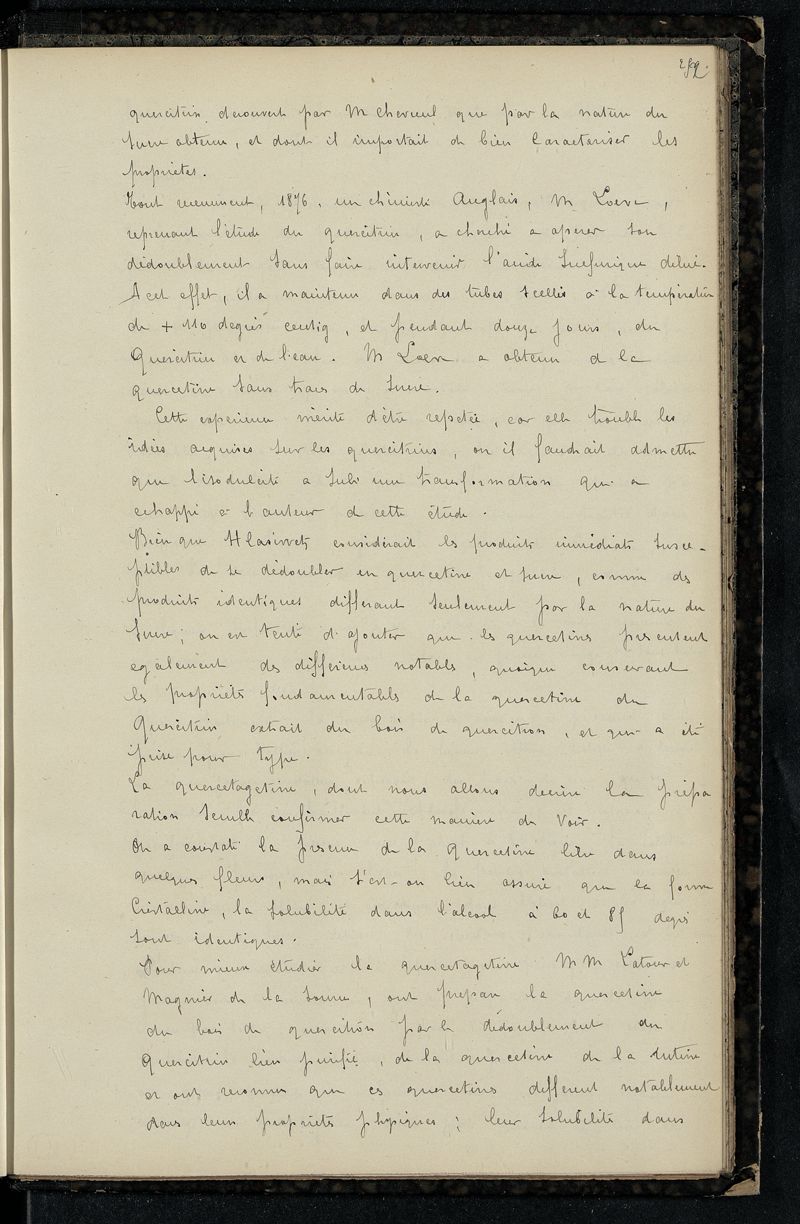 quercitrin decouvert par M Chevreul que par la nature du
sucre obtenu, et dont il importait de bien caracteriser les
proprietés.
Tout recemment, 1876, un chimiste Anglais, M Loewe,
reprenant l'étude du quercitrin, a cherché a operer son
dédoublement sans faire intervenir l'acide sulfurique dilué.
A cet effet, il a maintenu dans des tubes scellés à la température
de + 110 degrés centig, et pendant douze jours, du
Quercitrin et de l'eau. M Loewe a obtenu de la
quercetine sans traces de sucre.
Cette experience mérite d'être repetée, car elle trouble les
idées acquises sur les quercitrins, ou il faudrait admettre
que l'isodulcite a subi une transformation qui a
echappé à l'auteur de cette étude.
Bien que Hlasiwetz considérait les produits immédiats susce-
ptibles de se dédoubler en quercetine et sucre, comme des
produits identiques differant seulement par la nature du
sucre; on est tenté d'ajouter que les quercetines presentent
egalement des differences notables, quoique conservant
les proprietés fondamentales de la quercetine du
Quercitrin extrait du bois de quercitron, et qui a été
prise pour type.
La quercetagetine, dont nous allons decrire la prépa
ration semble confirmer cette maniere de voir.
On a constaté la presence de la Quercetine libre dans
quelques fleurs, mais s'est-on bien assuré que la forme
Cristalline, la solubilité dans l'alcool à 60 et 85 degrés
sont identiques.
Pour mieux étudier la quercetagetine MM Latour et
Magnier de la Source, ont preparé la quercetine
du bois de quercitron par le dédoublement du
Quercitrin bien purifié, de la quercetine de la rutine
et ont reconnu que ces quercetines different notablement
dans leurs proprietés physiques; leur solubilité dans